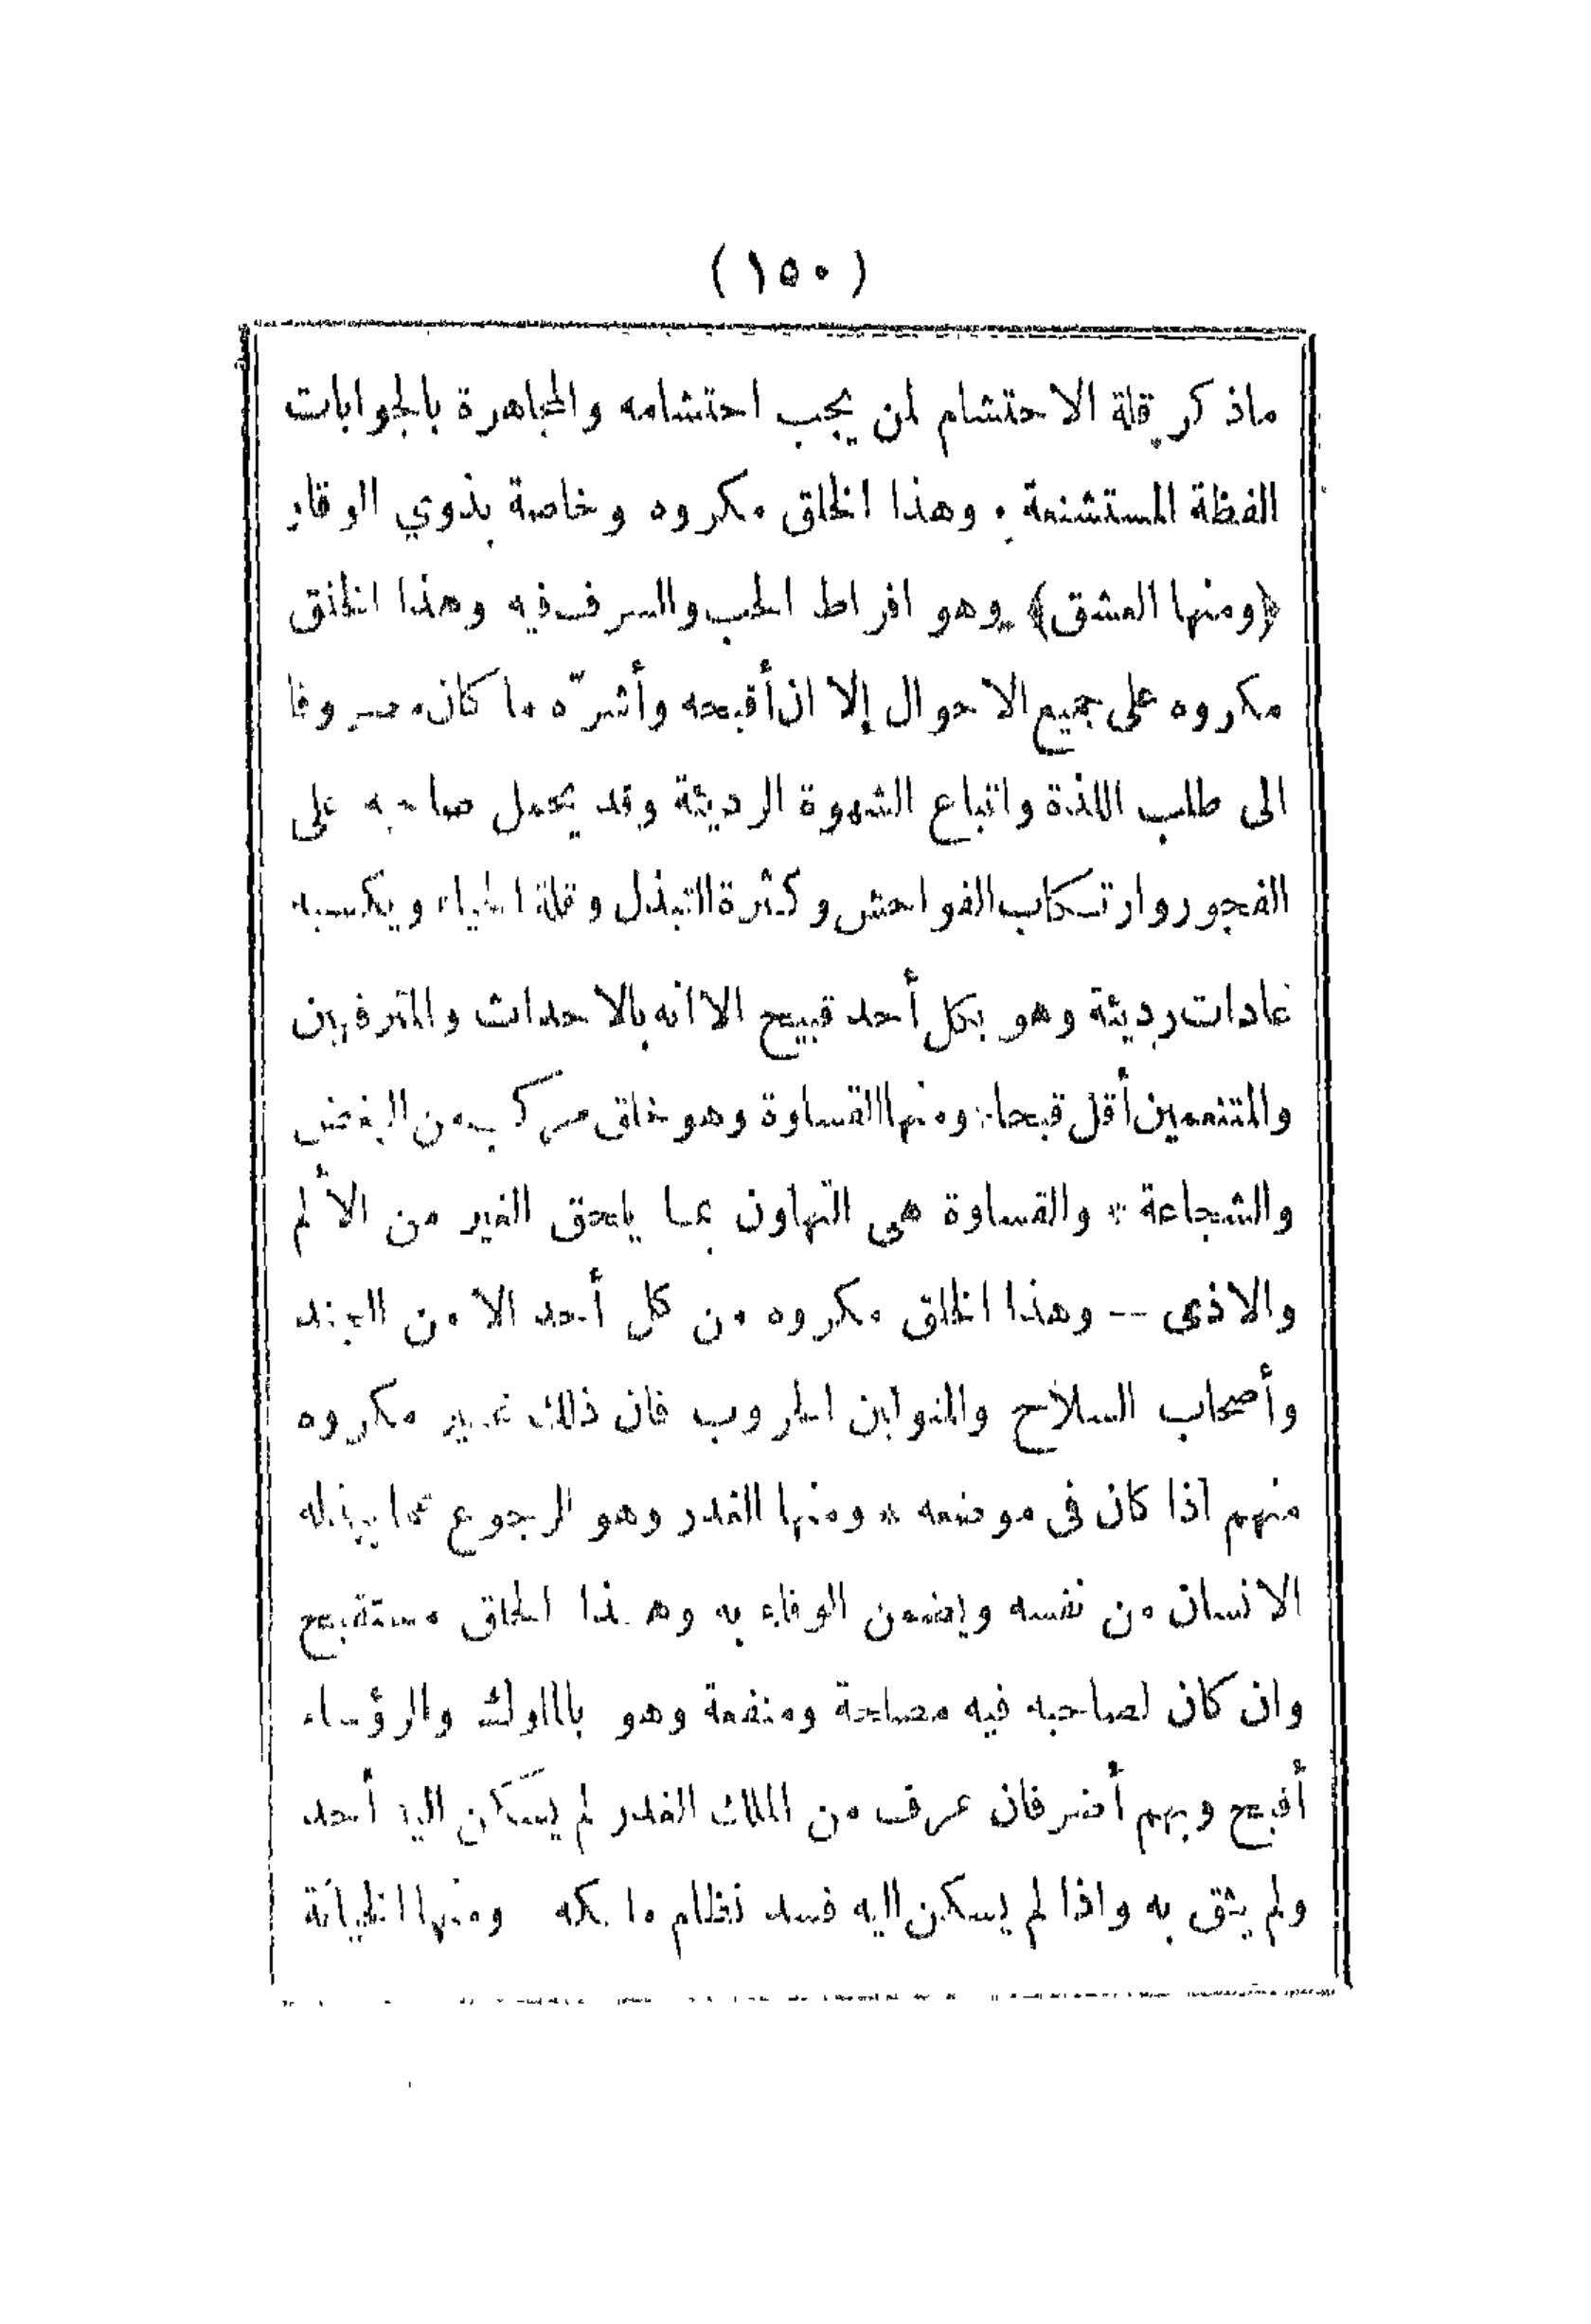 (١٥٠)
ماذكر قلة الاحتشام لمن يجب احتشامه والمجاهرة بالجوابات
الفظة المستشنعة . وهذا الخلق مكروه وخاصة بذوي الوقار
﴿ومنها العشق﴾ وهو افراط الحب والسرف فيه وهذا الخلق
مكروه على جميع الاحوال إلا ان أقبحه وأشرّه ما كان مصروفا
الى طلب اللذة واتباع الشهوة الرديئة وقد يحمل صاحبه على
الفجور وارتكاب الفواحش وكثرة التبذل وقلة الحياء ويكسبه
عادات رديئة وهو بكل أحد قبيح الا انه بالاحداث والمترفهين
والمتنعمين أقل قبحا * ومنها القساوة وهو خلق مركب من البغض
والشجاعة * والقساوة هى التهاون بما يلحق الغير من الألم
والاذى -- وهذا الخلق مكروه من كل أحد الا من الجند
وأصحاب السلاح والمتوابين الحروب فان ذلك غير مكروه
منهم اذا كان فى موضعه * ومنها الغدر وهو الرجوع عما يبذله
الانسان من نفسه ويضمن الوفاء به وهذا الخلق مستقبح
وان كان لصاحبه فيه مصلحة ومنفعة وهو بالملوك والرؤساء
أقبح وبهم أضر فان عرف من الملك الغدر لم يسكن اليه أحد
ولم يثق به واذا لم يسكن اليه فسد نظام ملكه ومنها الخيانة